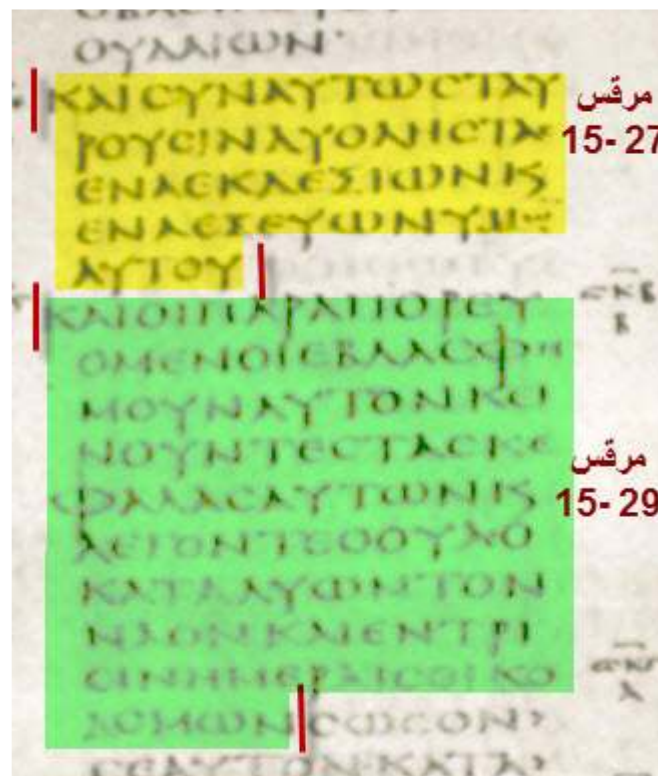 ΟΥΔΑΙΩΝ·
ΚΑΙϹΥΝΑΥΤΩϹΤΑΥ
ΡΟΥϹΙΝΔΥΟΛΗϹΤΑϹ
مرقس
15-27
ΕΝΑΕΚΔΕΞΙΩΝΚϚ
ΕΝΑΕΞΕΥΩΝΥΜΩ
ΑΥΤΟΥ
ΚΑΙΟΙΠΑΡΑΠΟΡΕΥ
ΟΜΕΝΟΙΕΒΛΑϹΦΗ
ΜΟΥΝΑΥΤΟΝΚΕΙ
ΝΟΥΝΤΕϹΤΑϹΚΕ
مرقس
15-29
ΦΑΛΑϹΑΥΤΩΝΚϚ
ΛΕΓΟΝΤΕϹΟΟΥΑΟ
ΚΑΤΑΛΥΩΝΤΟΝ
ΝΑΟΝΚΑΙΕΝΤΡΙ
ϹΙΝΗΜΕΡΑΙϹΟΙΚΟ
ΔΟΜΩΝϹΩϹΟΝ
ϹΕΑΥΤΟΝΚΑΤΑ